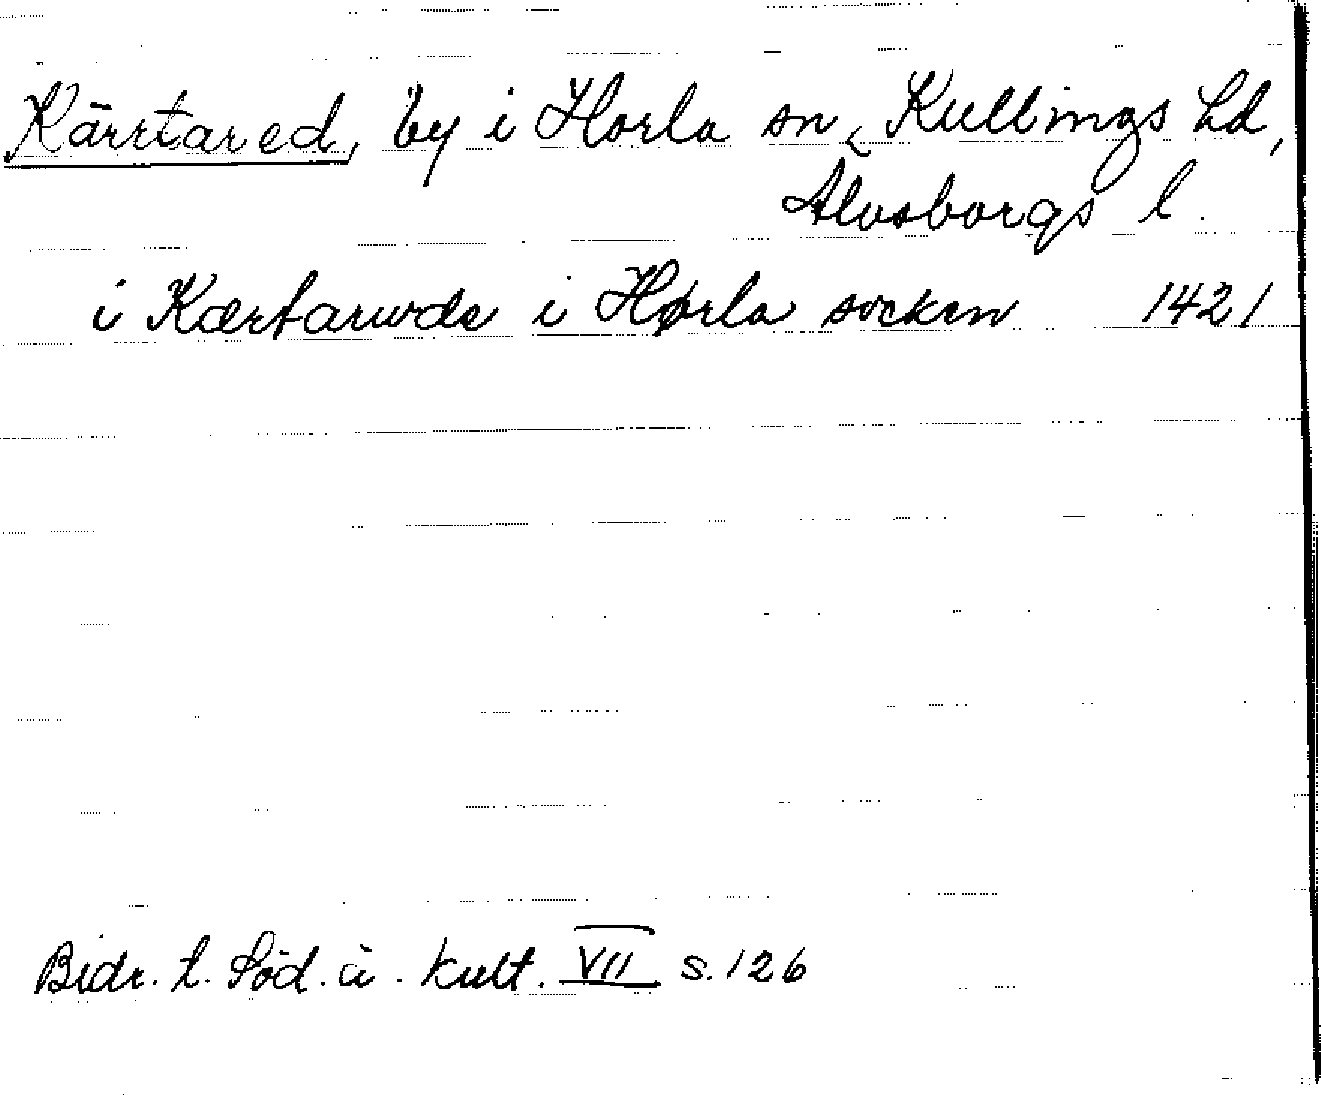 Kärrtared, by i Horla sn, Kullings hd,
Älvsborgs l.
i Kærtaruvde i Hørla socken 1421
Bidr. t. Söd. ä. kult. VII s. 126